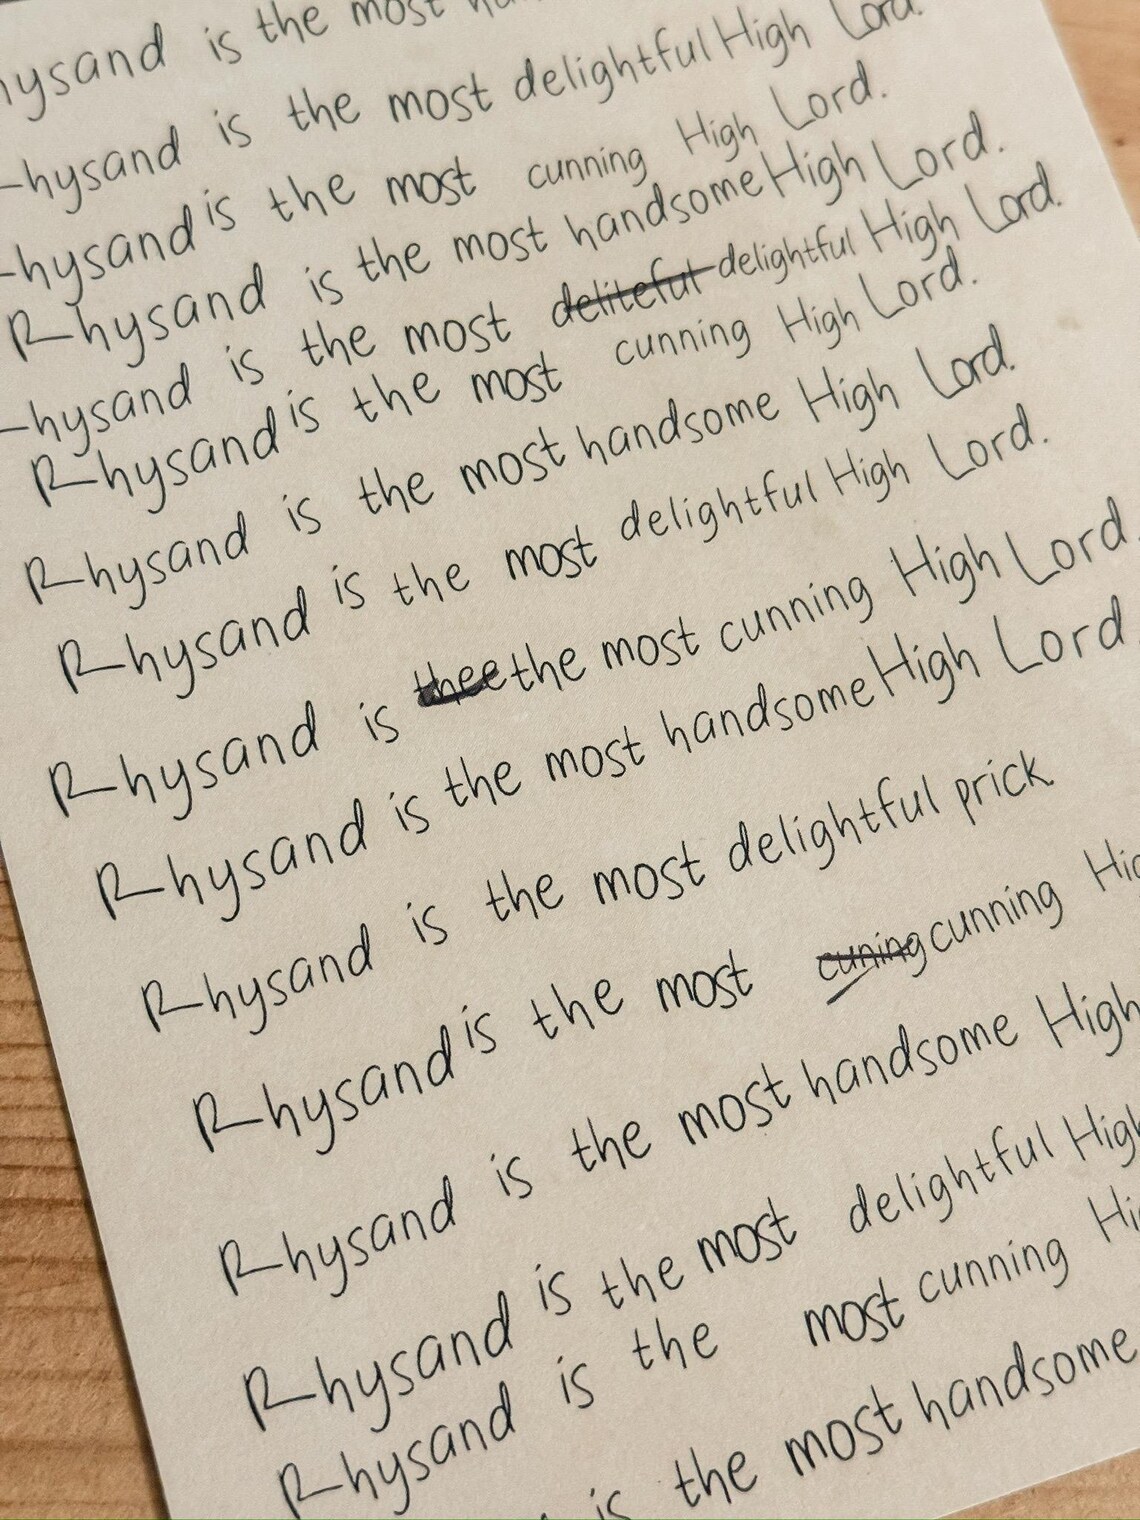 hysand is the most
hysand is the most delightful High Lord.
Rhysand is the most cunning High Lord.
Rhysand is the most handsome High Lord.
Rhysand is the most deliteful delightful High Lord.
Rhysand is the most cunning High Lord.
Rhysand is the most handsome High Lord.
Rhysand is the most delightful High Lord.
Rhysand is thee the most cunning High Lord.
Rhysand is the most handsome High Lord.
Rhysand is the most delightful prick.
Rhysand is the most cuning cunning Hig
Rhysand is the most handsome High
Rhysand is the most delightful High
Rhysand is the most cunning Hi
is the most handsome